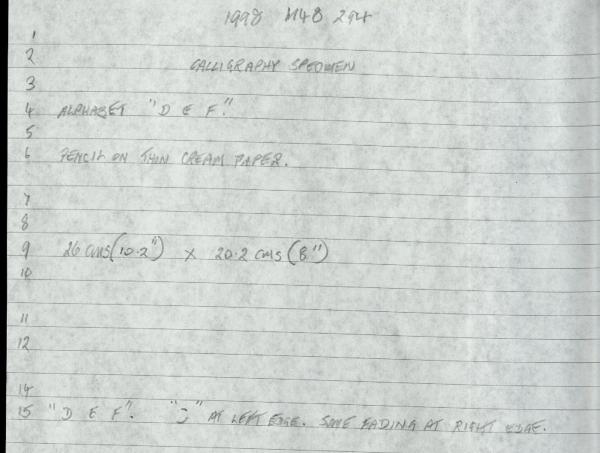 1998 M48 294
1
2 CALLIGRAPHY SPECIMEN
3
4 ALPHABET "D E F".
5
6 PENCIL ON THIN CREAM PAPER.
7
8
9 26 cms (10.2") X 20.2 cms (8")
10
11
12
14
15 "D E F". "J" AT LEFT EDGE. SOME FADING AT RIGHT EDGE.